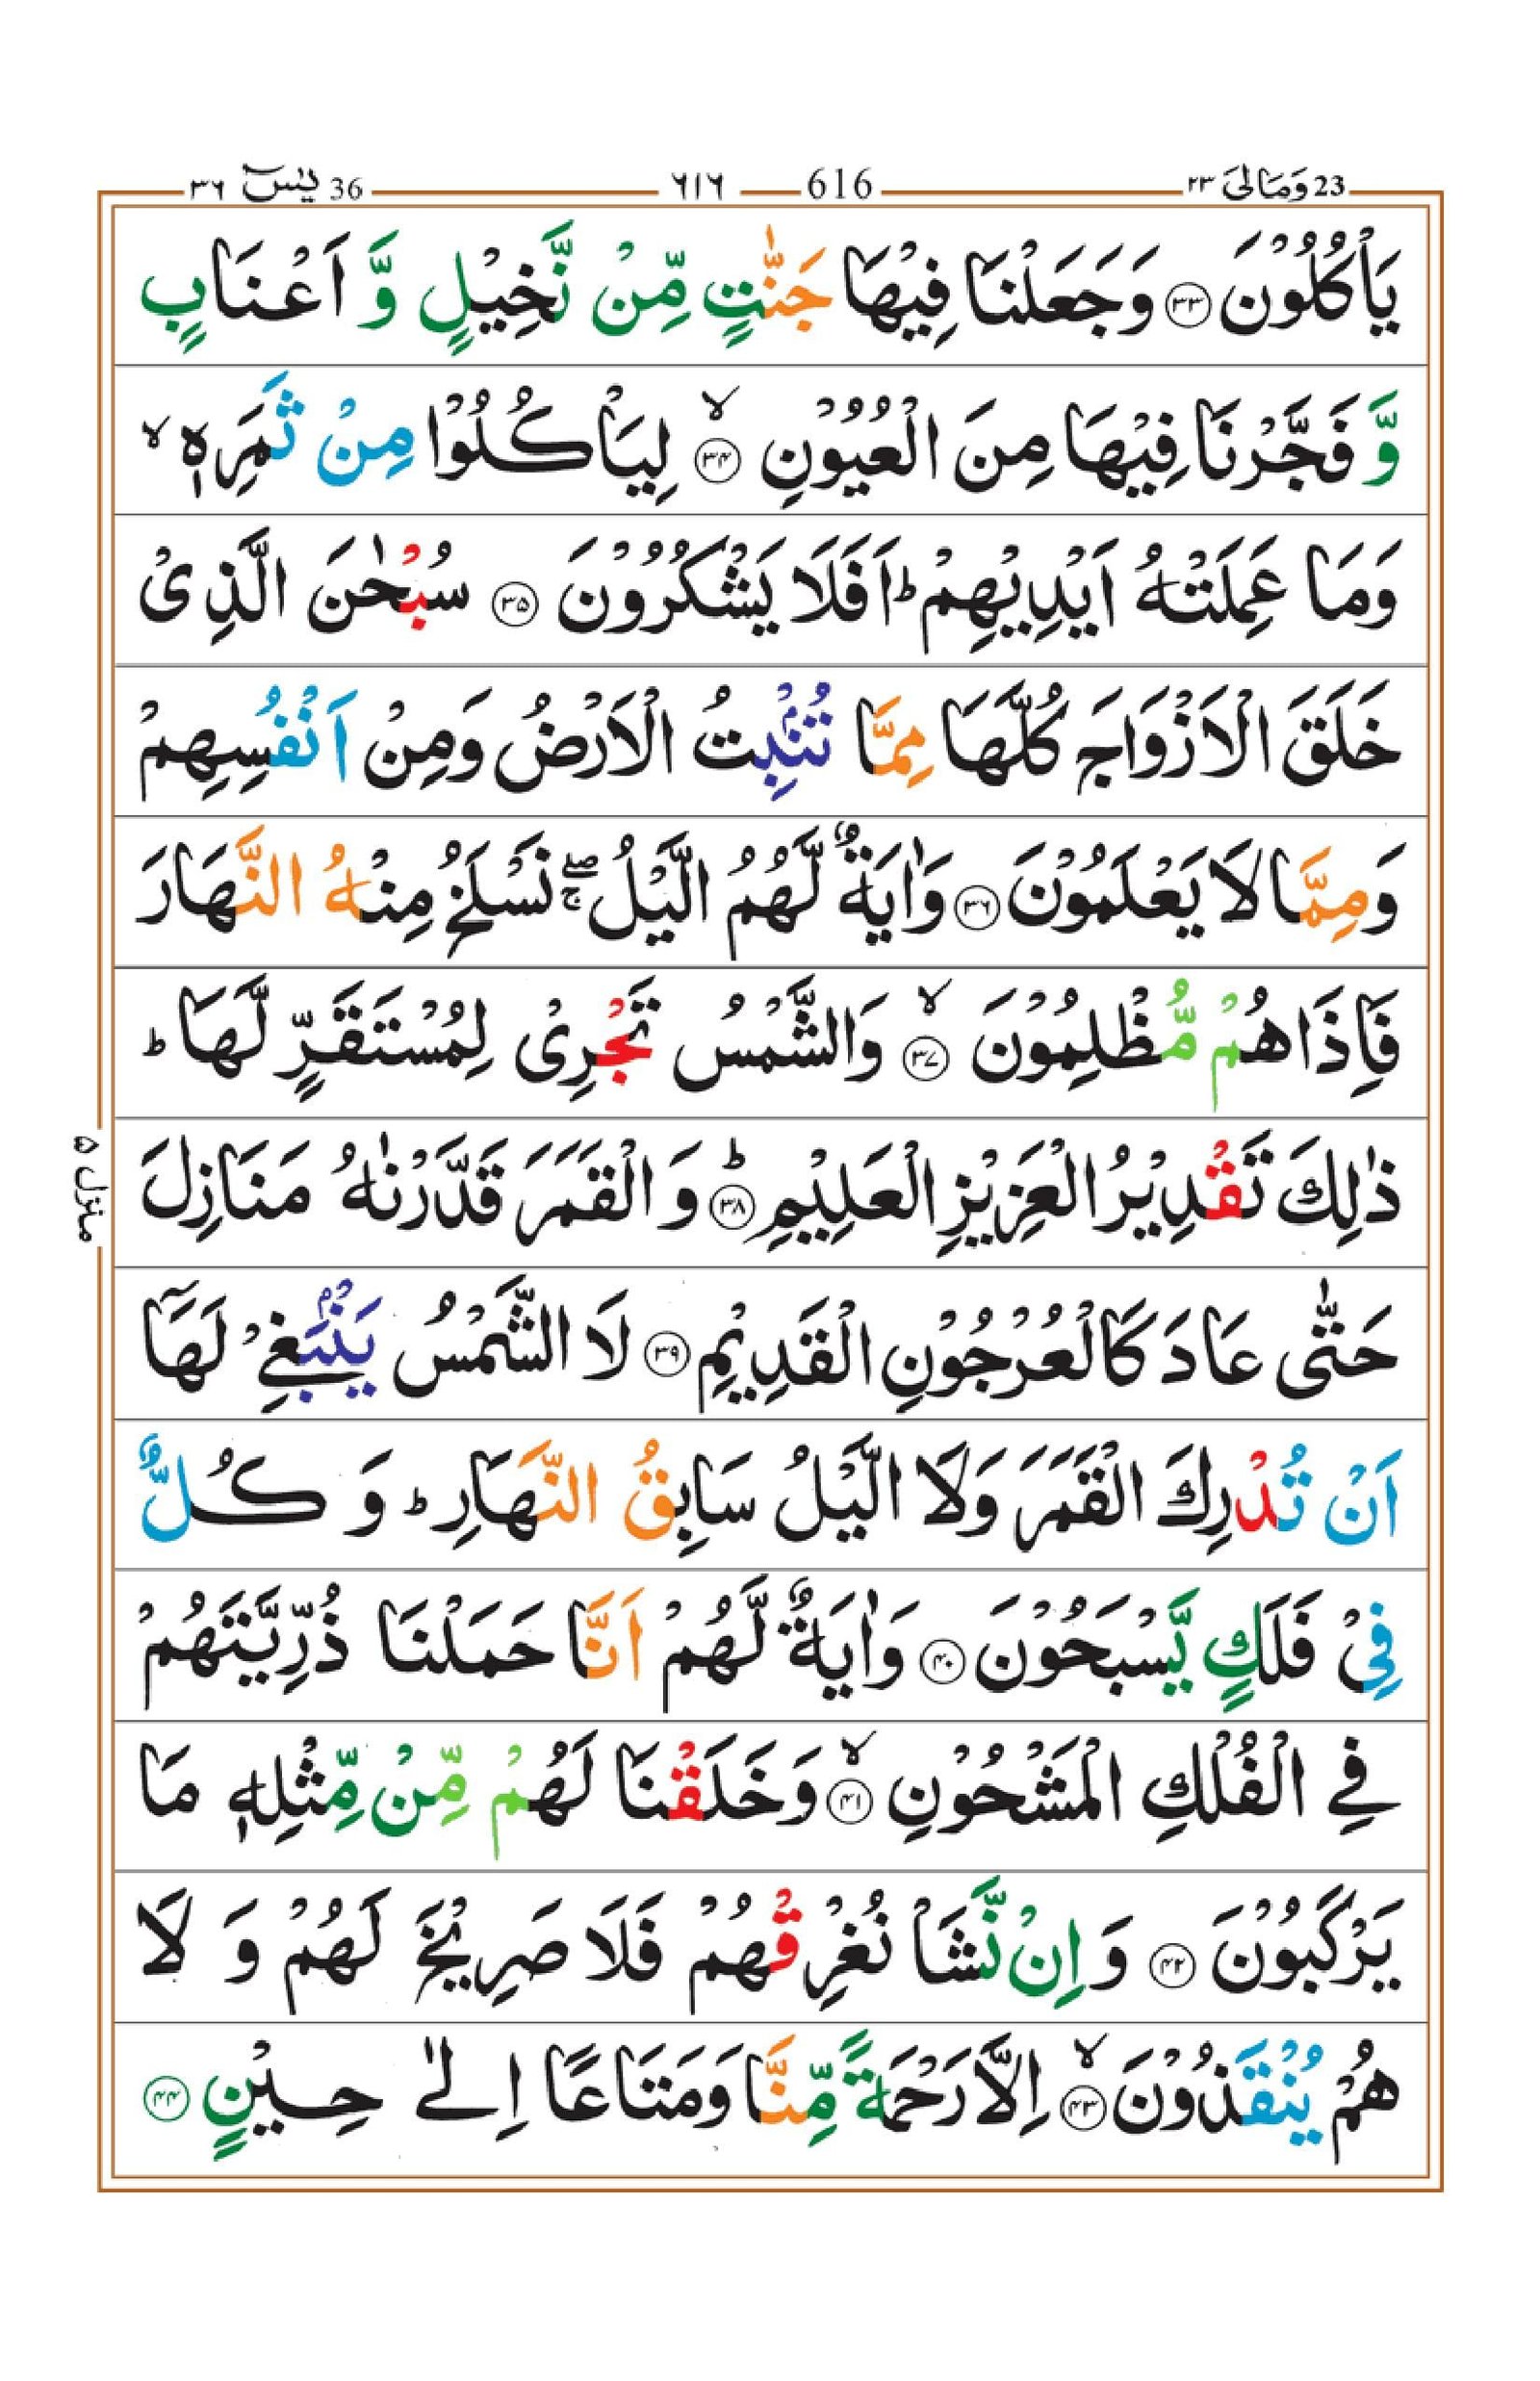 36 يٰسٓ ٣٦ ٦١٦ 616 23 وَمَالِیَ ٢٣
يَاْكُلُوْنَ ۝٣٣ وَجَعَلْنَا فِيْهَا جَنّٰتٍ مِّنْ نَّخِيْلٍ وَّ اَعْنَابٍ
وَّ فَجَّرْنَا فِيْهَا مِنَ الْعُيُوْنِ ۝٣٤ۙ لِيَاْكُلُوْا مِنْ ثَمَرِهٖ ۙ
وَمَا عَمِلَتْهُ اَيْدِيْهِمْ ؕ اَفَلَا يَشْكُرُوْنَ ۝٣٥ سُبْحٰنَ الَّذِیْ
خَلَقَ الْاَزْوَاجَ كُلَّهَا مِمَّا تُنْۢبِتُ الْاَرْضُ وَمِنْ اَنْفُسِهِمْ
وَمِمَّا لَا يَعْلَمُوْنَ ۝٣٦ وَاٰيَةٌ لَّهُمُ الَّيْلُ ۖۚ نَسْلَخُ مِنْهُ النَّهَارَ
فَاِذَا هُمْ مُّظْلِمُوْنَ ۝٣٧ۙ وَالشَّمْسُ تَجْرِیْ لِمُسْتَقَرٍّ لَّهَا ؕ
ذٰلِكَ تَقْدِيْرُ الْعَزِيْزِ الْعَلِيْمِ ۝٣٨ؕ وَ الْقَمَرَ قَدَّرْنٰهُ مَنَازِلَ
حَتّٰى عَادَ كَالْعُرْجُوْنِ الْقَدِيْمِ ۝٣٩ لَا الشَّمْسُ يَنْۢبَغِیْ لَهَاۤ
اَنْ تُدْرِكَ الْقَمَرَ وَلَا الَّيْلُ سَابِقُ النَّهَارِ ؕ وَ كُلٌّ
فِیْ فَلَكٍ يَّسْبَحُوْنَ ۝٤٠ وَاٰيَةٌ لَّهُمْ اَنَّا حَمَلْنَا ذُرِّيَّتَهُمْ
فِی الْفُلْكِ الْمَشْحُوْنِ ۝٤١ۙ وَخَلَقْنَا لَهُمْ مِّنْ مِّثْلِهٖ مَا
يَرْكَبُوْنَ ۝٤٢ وَ اِنْ نَّشَاْ نُغْرِقْهُمْ فَلَا صَرِيْخَ لَهُمْ وَ لَا
هُمْ يُنْقَذُوْنَ ۝٤٣ۙ اِلَّا رَحْمَةً مِّنَّا وَمَتَاعًا اِلٰى حِيْنٍ ۝٤٤
منزل ۵